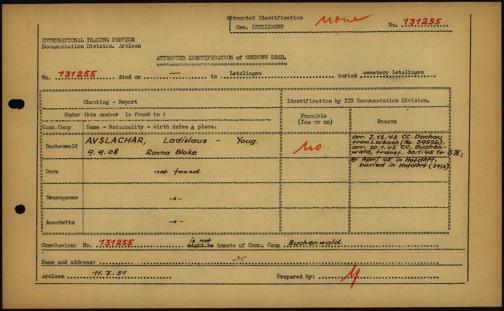 Attempted Identification
Cem. LETZLINGEN none No. 131255
INTERNATIONAL TRACING SERVICE
Documentation Division, Arolsen
ATTEMPTED IDENTIFICATION of UNKNOWN DEAD.
No. 131255 died on — in Letzlingen buried cemetery Letzlingen
Checking - Report
Identification by ITS Documentation Division.
Under this number is found in :
Possible (Yes or no)
Reason
Conc.Camp Name - Nationality - Birth dates & place.
Buchenwald AVSLACHAR, Ladislaus - Youg.
9.9.08 Ravna Bloke
No.
arr. 7.12.43 CC. Dachau
from Laibach (No. 59536).
arr. 20.1.45 CC. Buchen-
wald, transf. 30.1.45 to S III,
April 45 in Hofdorf,
buried in Hofdorf
Dora not found
Neuengamme -"-
Auschwitz -"-
Conclusion: No. 131255 is not might be inmate of Conc. Camp Buchenwald
Name and address: -/-
Arolsen 11.7.51 Prepared by: